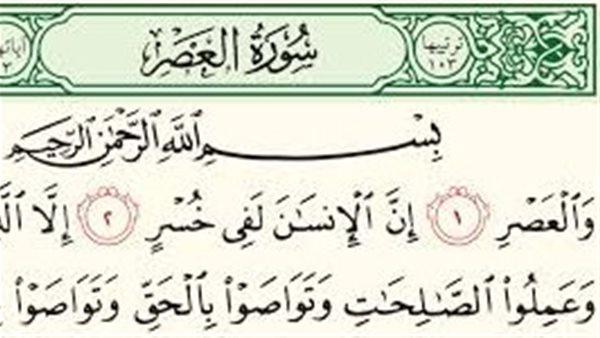 سُورَةُ العَصْرِ ترتيبها ١٠٣
بِسْمِ ٱللَّهِ ٱلرَّحْمَٰنِ ٱلرَّحِيمِ
وَٱلْعَصْرِ ١ إِنَّ ٱلْإِنسَٰنَ لَفِى خُسْرٍ ٢ إِلَّا
وَعَمِلُوا۟ ٱلصَّٰلِحَٰتِ وَتَوَاصَوْا۟ بِٱلْحَقِّ وَتَوَاصَوْا۟